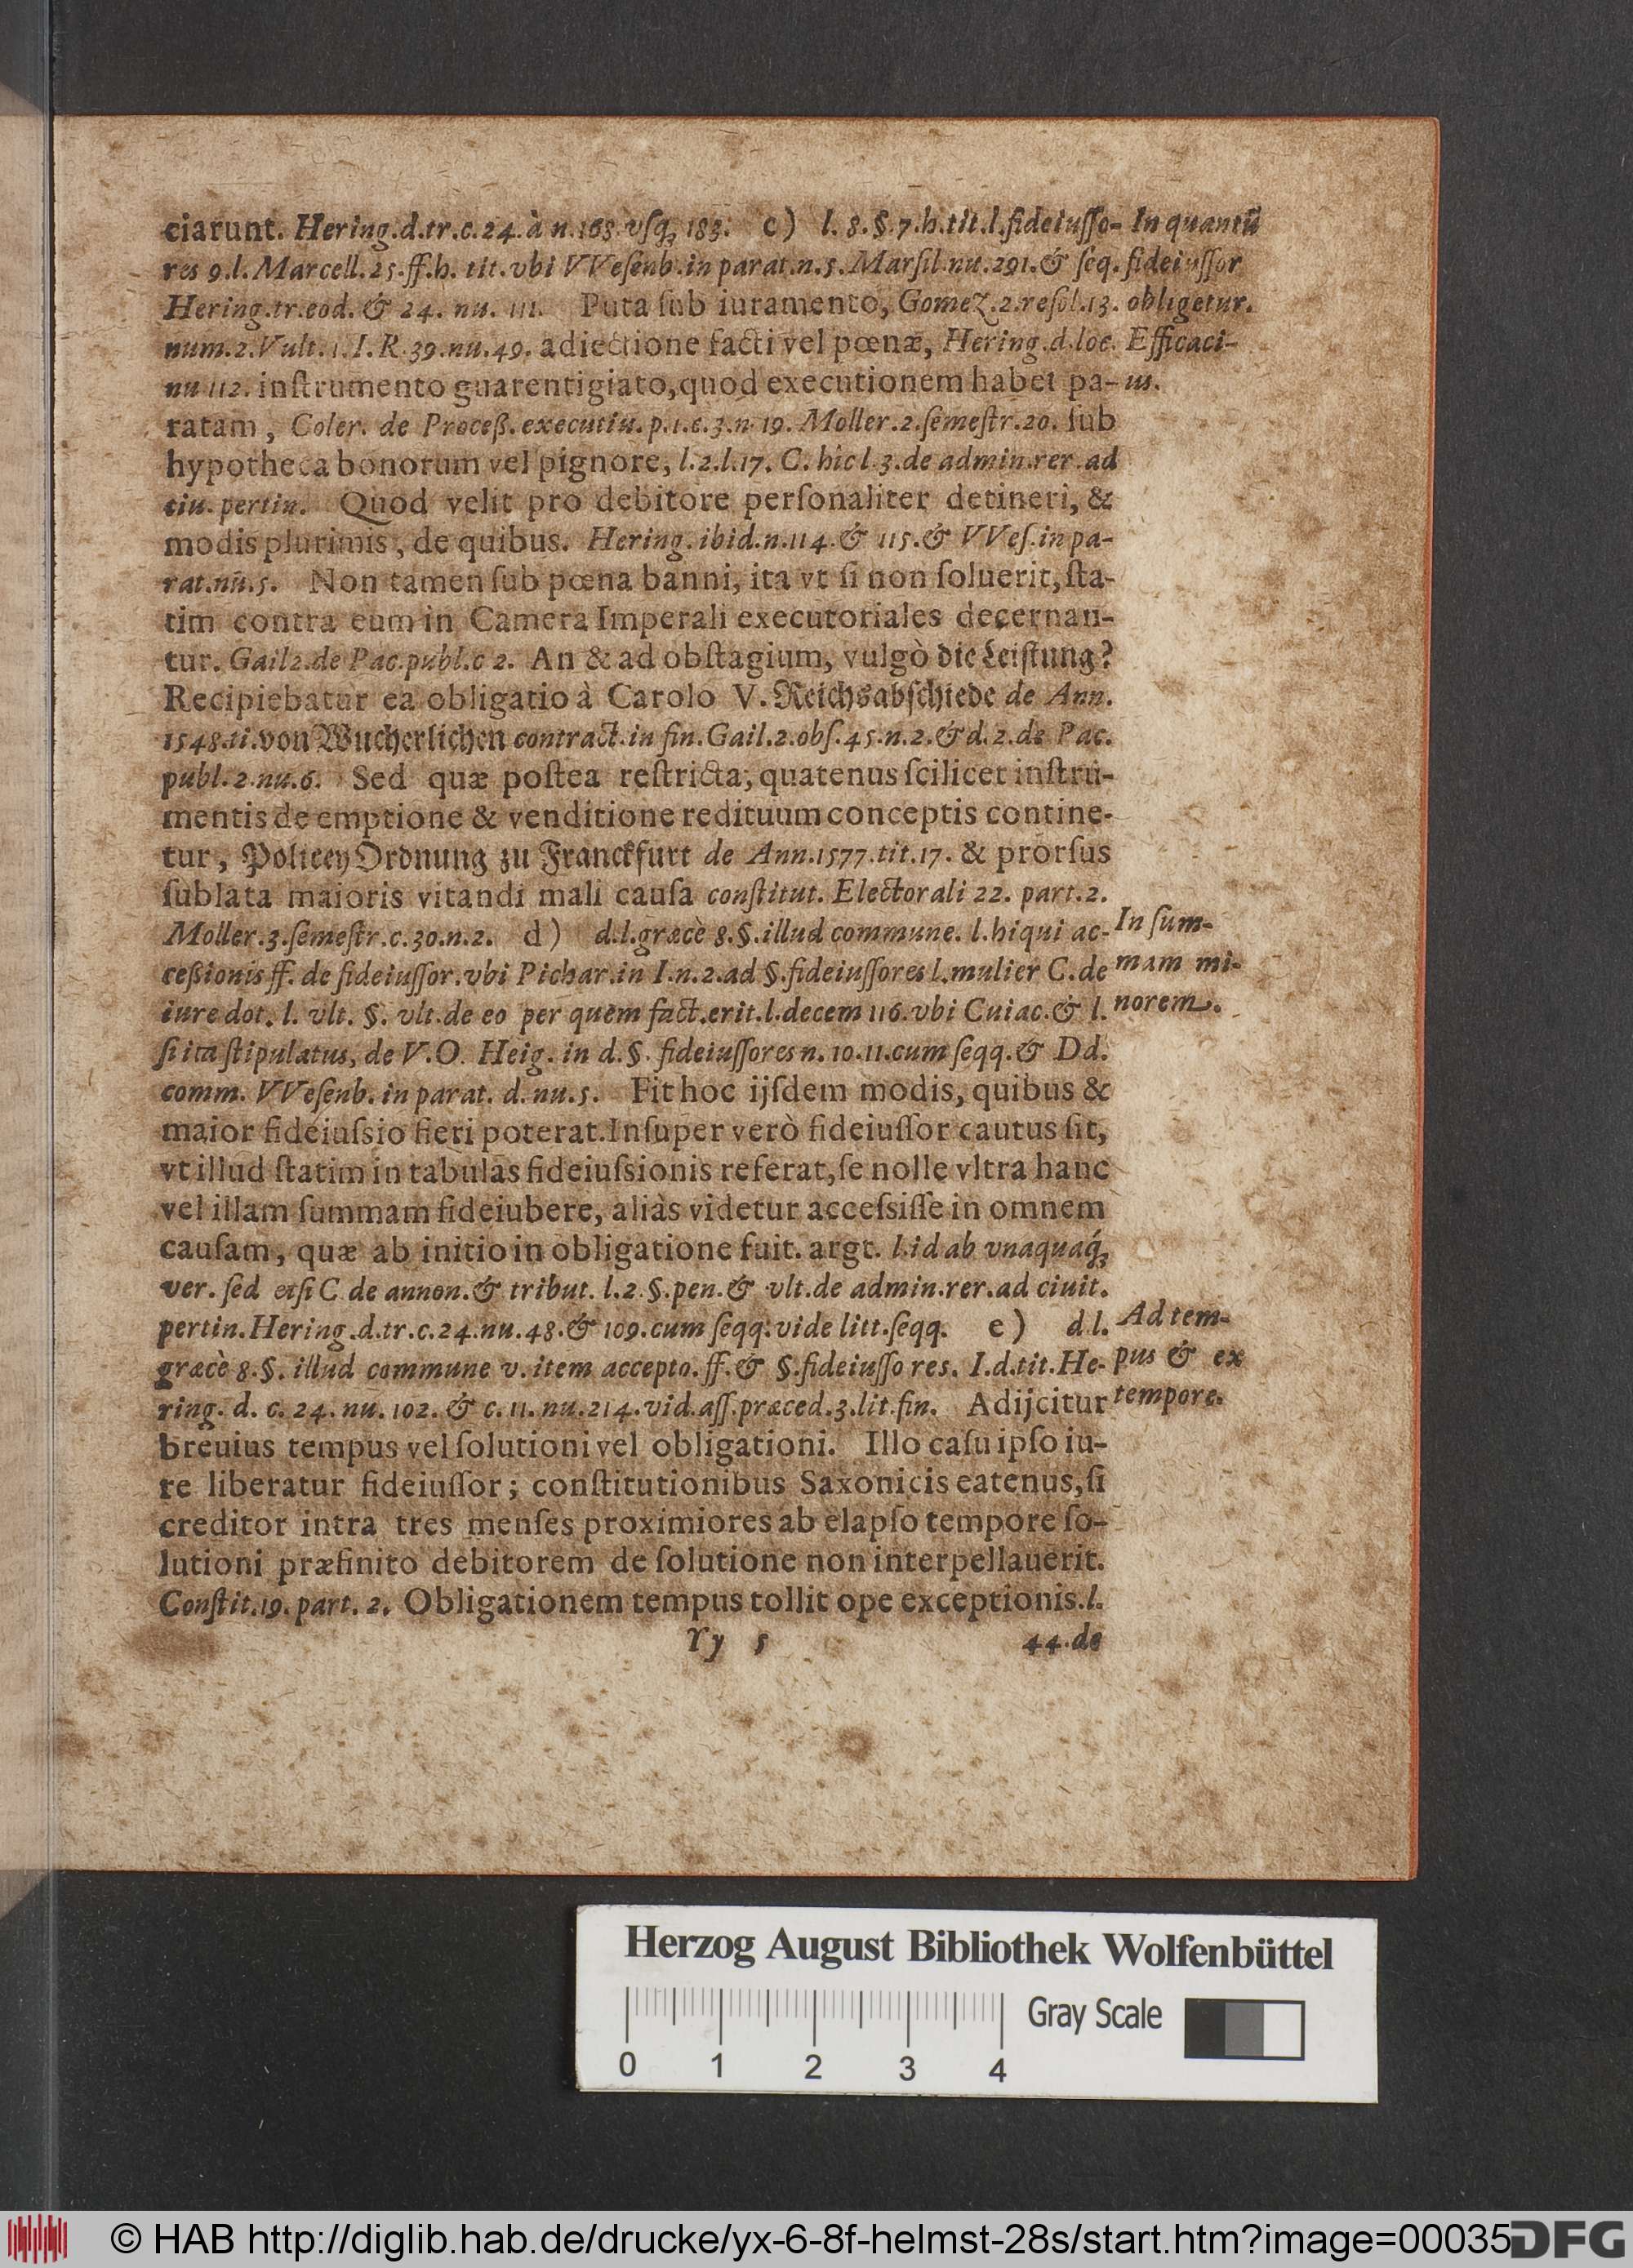 ciarunt. Hering.d.tr.c.24.à n.163.vſq; 183. c) l.8.§.7.h.tit.l.fideiuſſo-
res 9.l.Marcell.25.ff.h. tit.vbi VVeſenb.in parat.n.5.Marſil.nu.291.& ſeq.
Hering.tr.eod. & 24. nu. 111. Puta ſub iuramento, Gomez.2.reſol.13.
num.2.Vult.1.I.R.39.nu.49. adiectione facti vel pœnæ, Hering.d.loc.
nu 112. inſtrumento guarentigiato,quod executionem habet pa-
In quantũ
fideiuſſor
obligetur.
Efficaci-
us.
ratam, Coler. de Proceß.executiu.p.1.c.3.n.19.Moller.2.ſemeſtr.20. ſub
hypotheca bonorum vel pignore, l.2.l.17. C. hic l.3.de admin.rer.ad
ciu.pertin. Quod velit pro debitore perſonaliter detineri, &
modis plurimis, de quibus. Hering.ibid.n.114.& 115.& VVeſ.in pa-
rat.nũ.5. Non tamen ſub pœna banni, ita vt ſi non ſoluerit, ſta-
tim contra eum in Camera Imperali executoriales decernan-
tur. Gail2.de Pac.publ.c 2. An & ad obſtagium, vulgò die Leiſtung?
Recipiebatur ea obligatio à Carolo V. Reichsabſchiede de Ann.
1548.ti.von Wucherlichen contract.in fin.Gail.2.obſ.45.n.2.& d.2.de Pac.
publ.2.nu.6. Sed quæ poſtea reſtricta, quatenus ſcilicet inſtru-
mentis de emptione & venditione redituum conceptis contine-
tur, Policey Ordnung zu Franckfurt de Ann.1577.tit.17. & prorſus
ſublata maioris vitandi mali cauſa conſtitut. Electorali 22. part.2.
Moller.3.ſemeſtr.c.30.n.2. d) d.l.græcè 8.§.illud commune. l.hi qui ac-
ceßionis ff. de fideiuſſor.vbi Pichar.in I.n.2.ad §.fideiuſſores l.mulier C.de
iure dot. l. vlt. §. vlt.de eo per quem fact.erit.l.decem 116.vbi Cuiac.& l.
In ſum-
mam mi-
norem.
ſi ita ſtipulatus, de V.O. Heig. in d.§. fideiuſſores n. 10.11.cum ſeqq.& Dd.
comm. VVeſenb. in parat. d. nu.5. Fit hoc ijſdem modis, quibus &
maior fideiuſsio fieri poterat.Inſuper verò fideiuſſor cautus ſit,
vt illud ſtatim in tabulas fideiuſsionis referat, ſe nolle vltra hanc
vel illam ſummam fideiubere, aliàs videtur acceſsiſſe in omnem
cauſam, quæ ab initio in obligatione fuit. argt. l.id ab vnaquaq́;
ver. ſed etſi C de annon.& tribut. l.2.§.pen.& vlt.de admin.rer.ad ciuit.
pertin.Hering.d.tr.c.24.nu.48.& 109.cum ſeqq.vide litt.ſeqq. e) d l.
græcè 8.§. illud commune v.item accepto.ff.& §.fideiuſſores. I.d.tit.He-
ring. d. c. 24. nu. 102. & c. 11. nu.214.vid.aſſ.præced.3.lit.fin. Adijcitur
Ad tem-
pus & ex
tempore.
breuius tempus vel ſolutioni vel obligationi. Illo caſu ipſo iu-
re liberatur fideiuſſor; conſtitutionibus Saxonicis eatenus, ſi
creditor intra tres menſes proximiores ab elapſo tempore ſo-
lutioni præfinito debitorem de ſolutione non interpellauerit.
Conſtit.19.part. 2. Obligationem tempus tollit ope exceptionis.l.
Yy 5 44.de
Herzog August Bibliothek Wolfenbüttel
Gray Scale
0 1 2 3 4
© HAB http://diglib.hab.de/drucke/yx-6-8f-helmst-28s/start.htm?image=00035
DFG